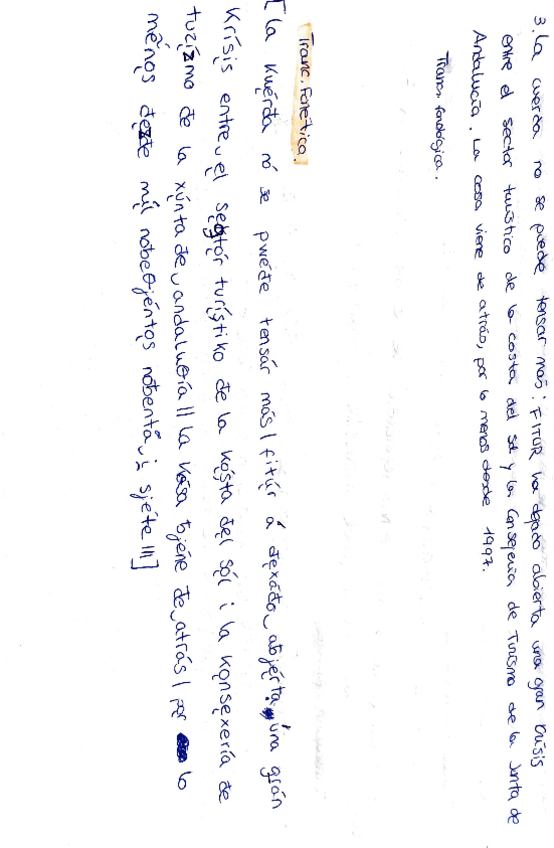 3. La cuerda no se puede tensar más: FITUR ha dejado abierta una gran crisis
entre el sector turístico de la costa del sol y la Consejería de Turismo de la Junta de
Andalucía. La cosa viene de atrás, por lo menos desde 1997.
Trans. fonológica.
Tranc. Fonética.
[la kwérđa nó se pwéđe tensár más| fitúr á đexáđo‿aƀjérta úna grán
krísis entre‿el seǥtór turístiko đe la kósta đel sól i la konsexería đe
turízmo đe la xúnta đe‿andaluθía|| la kósa ƀjéne đe‿atrás| por lo
ménos đezđe míl noƀeθjéntos noƀénta‿i sjéte|||]